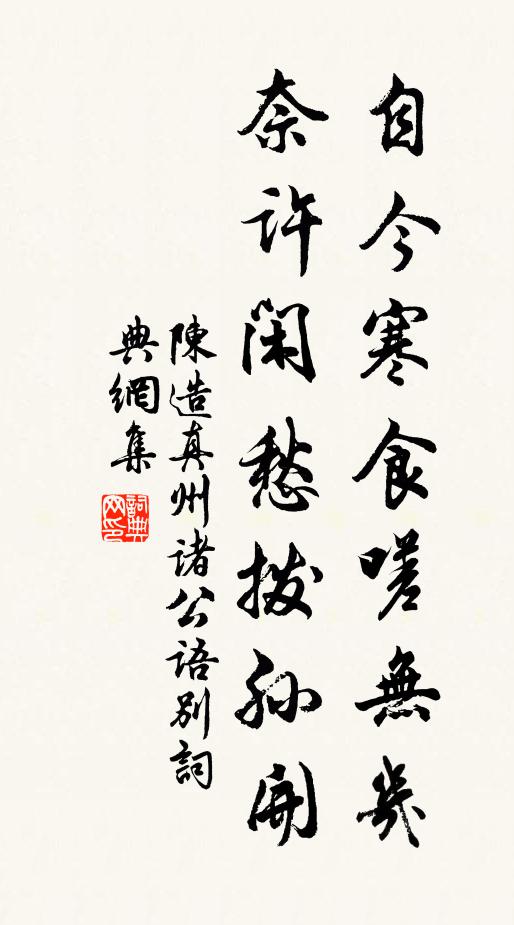 自今寒食嗟無幾
奈許閑愁撥開
陳造真州諸公語別詞
典網集
詞典网印